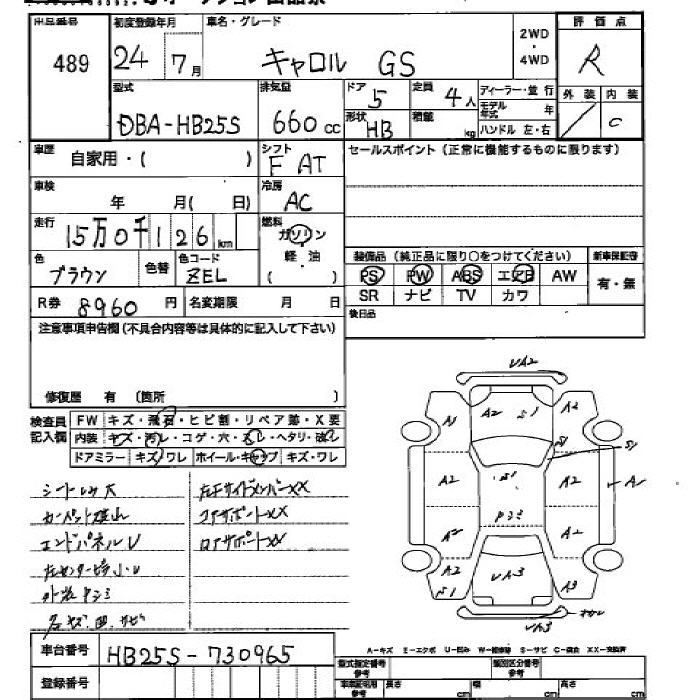 出品番号 初度登録年月 車名・グレード 2WD・4WD 評価点
489 24 7月 キャロル GS R
外装 内装
C
型式 排気量 ドア 定員 ディーラー・並行
DBA-HB25S 660cc 5 4人 モデル年式 年
形状 積載 ハンドル 左・右
HB kg
車歴 自家用・( ) シフト F AT セールスポイント(正常に機能するものに限ります)
車検 年 月( 日) 冷房 AC
走行 15万0千126km 燃料 ガソリン
軽油
( )
色 ブラウン 色替 色コード ZEL
装備品(純正品に限り○をつけてください) 新車保証書
PS PW ABS エアB AW 有・無
SR ナビ TV カワ
R券 8960円 名変期限 月 日 後日品
注意事項申告欄(不具合内容等は具体的に記入して下さい)
修復歴 有 (箇所 )
検査員記入欄 FW キズ・飛石・ヒビ割・リペア跡・X要
内装 キズ・汚レ・コゲ・穴
・ヘタリ・破レ
ドアミラー キズ/ワレ ホイール・キャップ キズ・ワレ
エンドパネルU
コアサポートXX
VA2
A1 A2 S1 A2
S1 S1
A2 S1 A2 A1
A2 A2
A2 S1 VA3 A3
VA3
A-キズ E-エクボ U-凹み W-補修跡 S-サビ C-腐食 XX-交換済
車台番号 HB25S-730965
登録番号
型式指定番号 参考 類別区分番号 参考
長さ cm 幅 cm 高さ cm